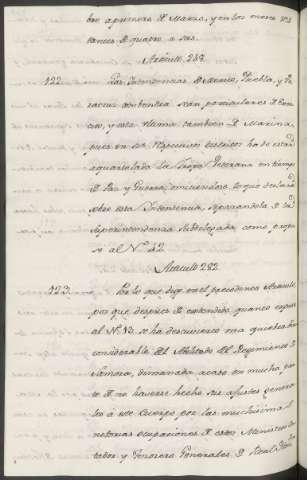 bre a primeros de Marzo, y en los nueve res
tantes de quatro a seis.
Articulo 251
122 Las Intendencias de Mexico, Puebla, y Ve
racruz contentas serán particulares de Exer
cito, y esta ultima tambien de Marina
pues en sus respectivos territorios ha de estar
aquartelada la Tropa Veterana en tiempo
de Paz y Guerra, omitiendose lo que declara
sobre esta Intendencia, separandola de la
Superintendencia Subdelegada como propu
se al N.º 42.
Articulo 252
123 Por lo que dige en el precedente Articulo
por que despues de extendido quanto expuse
al N.º 13. se ha descubierto una quiebra
considerable del Abilitado del Regimiento de
Zamora, dimanada acaso en mucha par
te de no haverse hecho sus ajustes genera
les à este Cuerpo por las muchisimas y
notorias ocupaciones de estos Ministros Con
tadores y Tesoreros Generales de Real